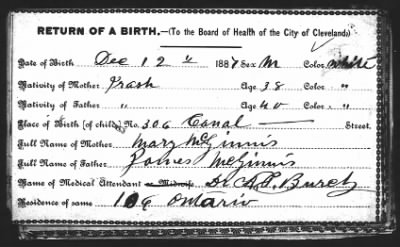 RETURN OF A BIRTH.—(To the Board of Health of the City of Cleveland)
Date of Birth Dec 12th 1887 Sex M Color White
Nativity of Mother Irash Age 38 Color "
Nativity of Father " Age 40 Color "
Place of Birth (of child) No. 306 Canal Street.
Full Name of Mother Mary McGinnis
Full Name of Father James McGinnis
Name of Medical Attendant or Midwife Dr Burch
Residence of same 106 Ontario